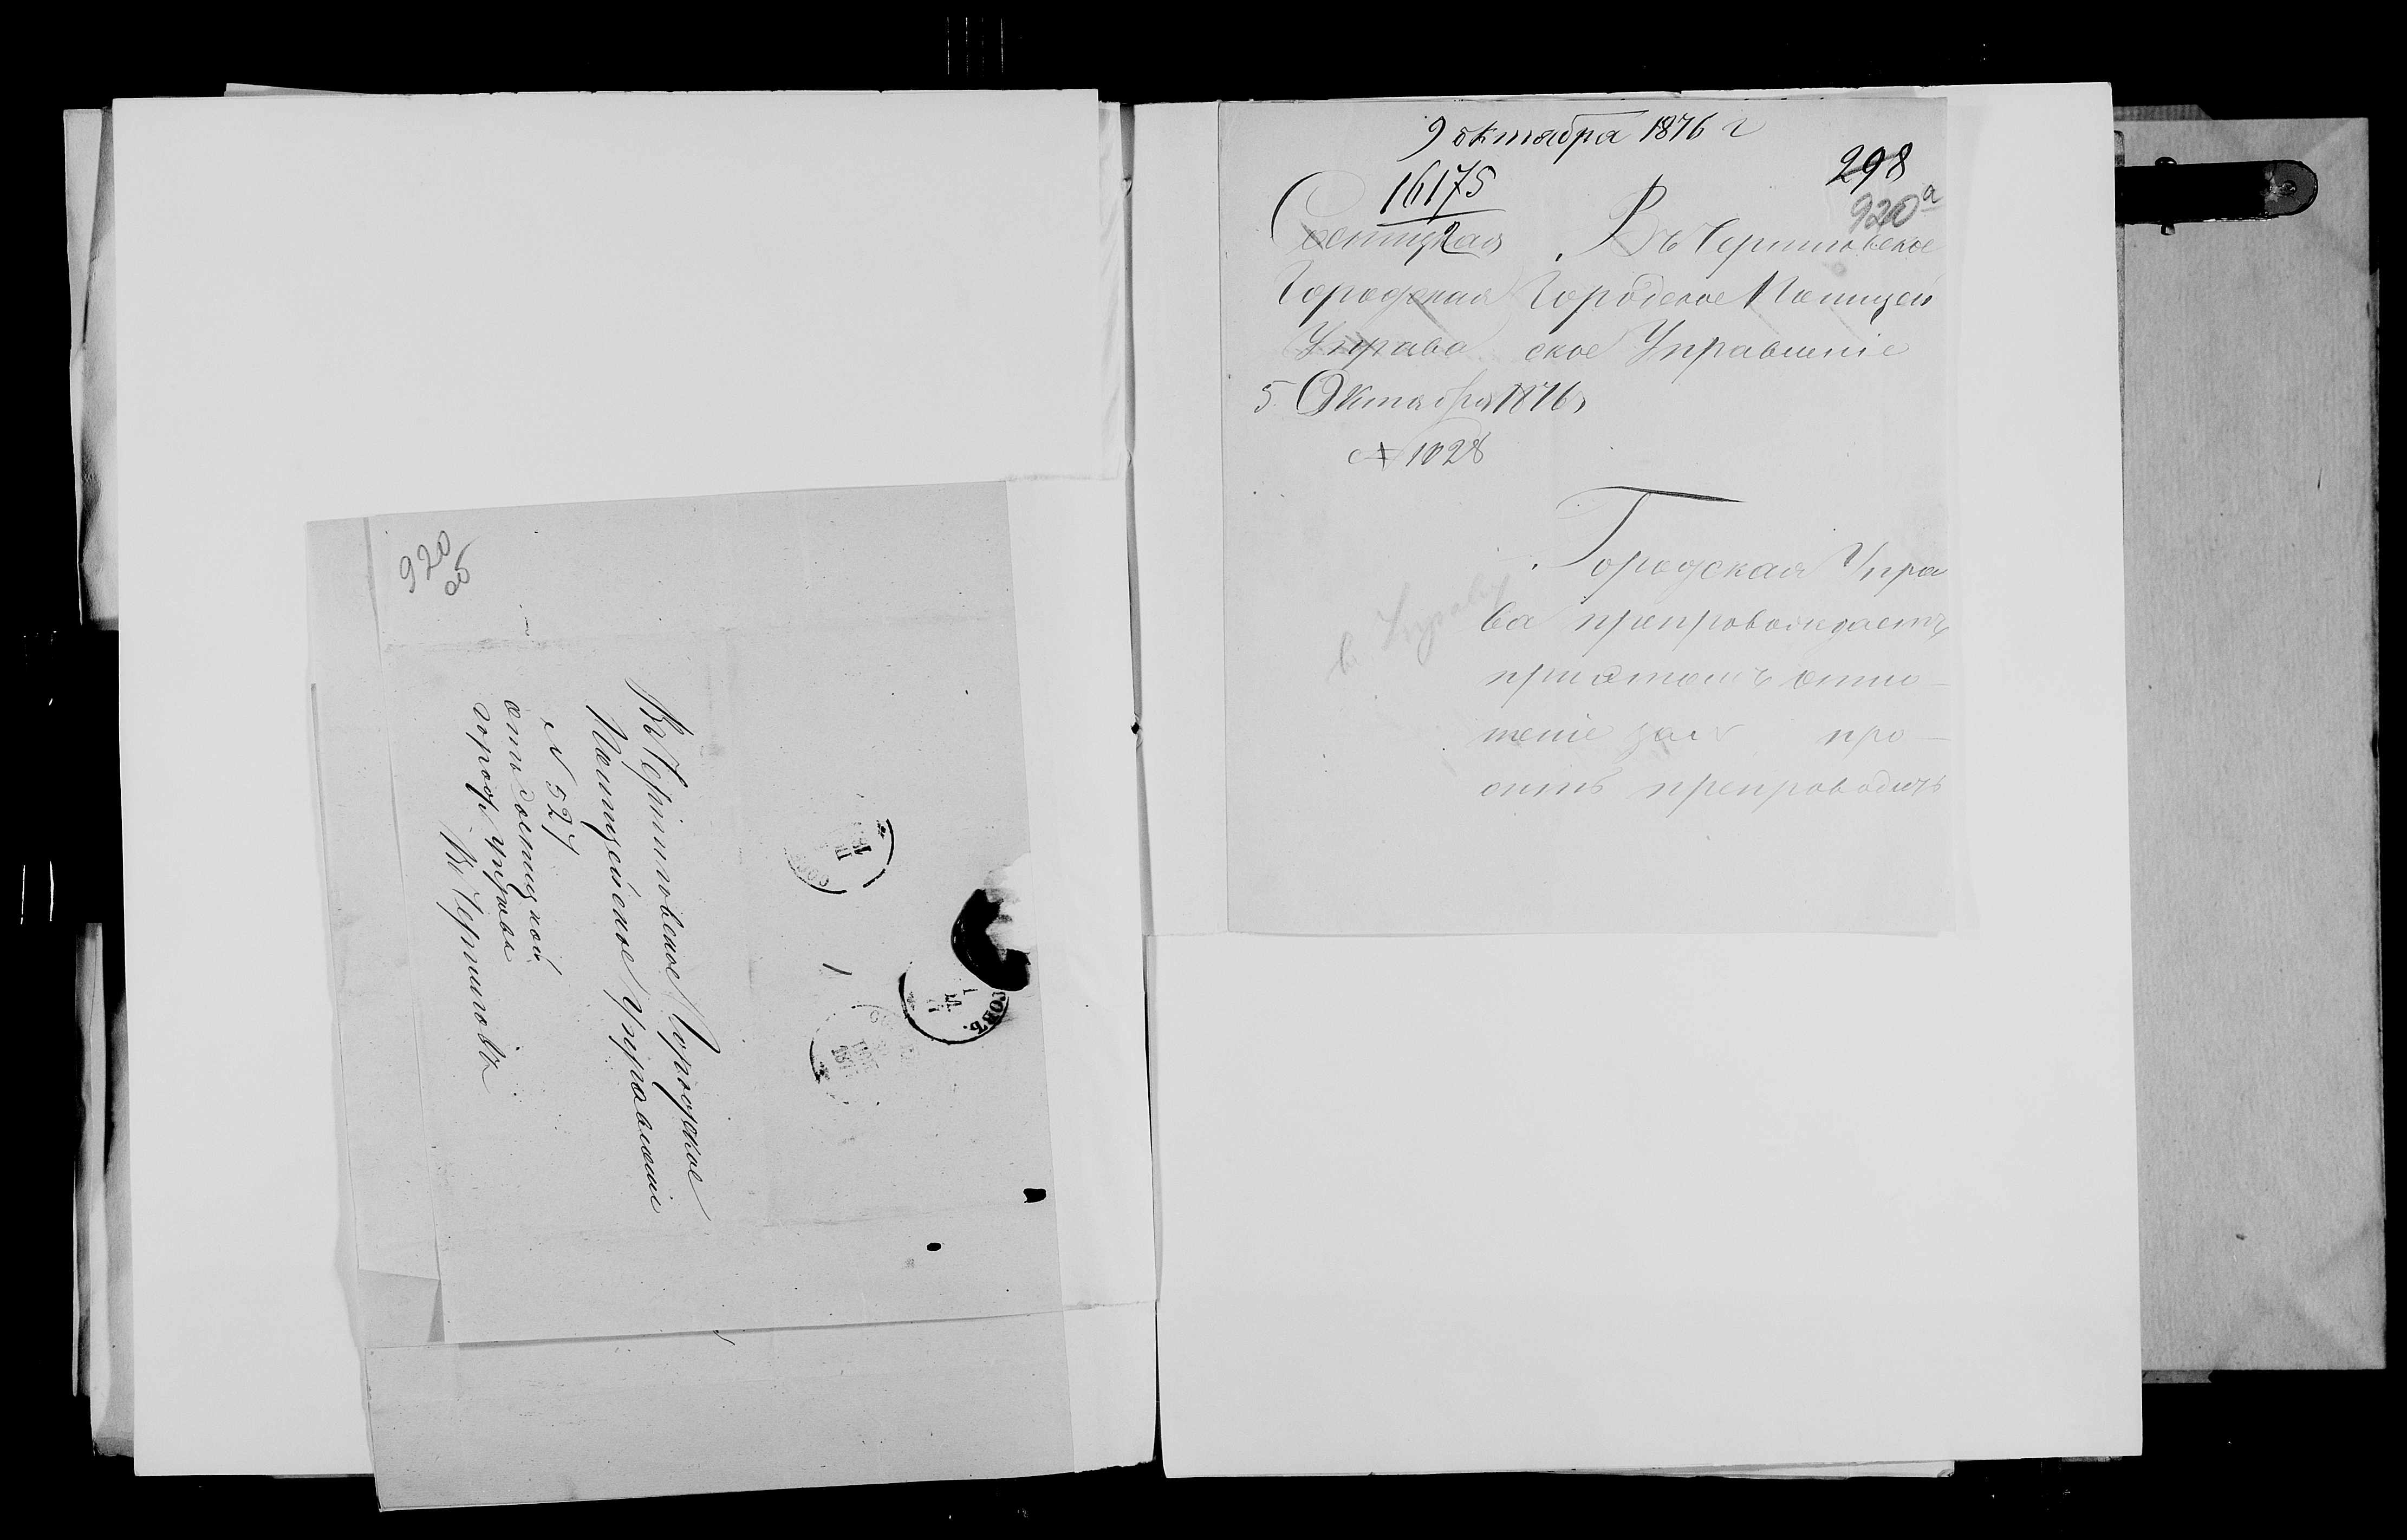 920
об
Въ Черниговское Городское
Полицейское Управленіе
№ 527
отъ Сосницкой
город. управы
Въ Черниговъ
9 октября 1876 г
298
16175
2
920а
Сосницкая
Городская
Управа
5 Октября 1876
№ 1028
Въ Черниговское
Городское Полицей
ское Управленіе
Городская Упра
ва препровождаетъ
при этомъ отно-
шеніе про-
ситъ препроводить